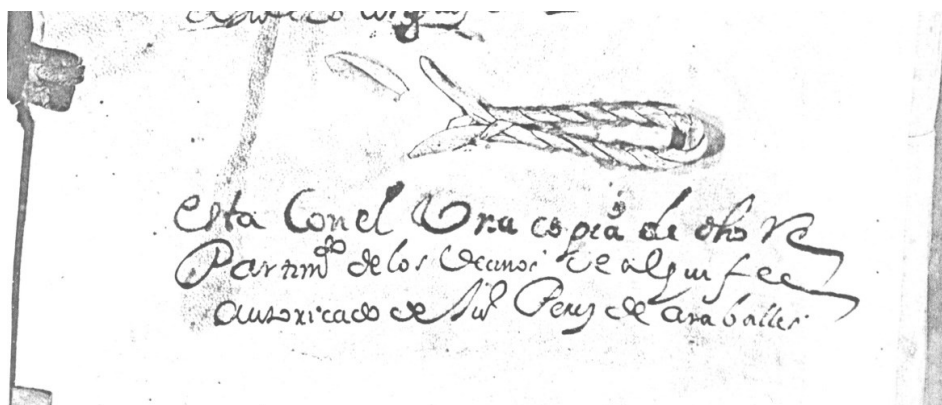 esta Con el Una copia de dho Re
Partimto de los Vecinos de alquife
autoricado de Perez de araballes